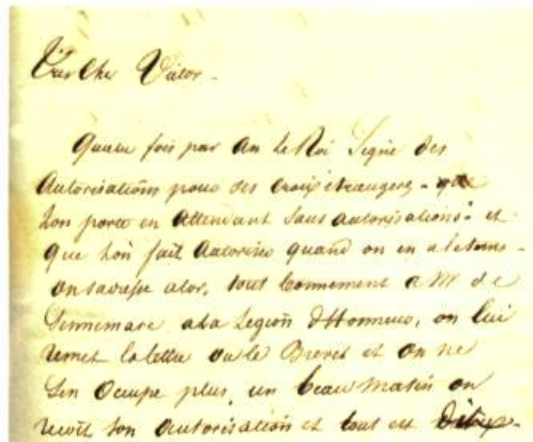 Très Cher Victor -
Quatre fois par An Le Roi Signe des
Autorisations pour des croix étrangers - que
lon porte en Attendant Sans autorisations - et
que lon fait Autoriser quand on en a le tems -
on sadresse alor, tout bonnement a Mr de
a la Legion d'Honneur, on lui
remet la lettre ou le Brevet et on ne
sen Occupe plus, un beau Matin on
reçoit son Autorisation et tout est